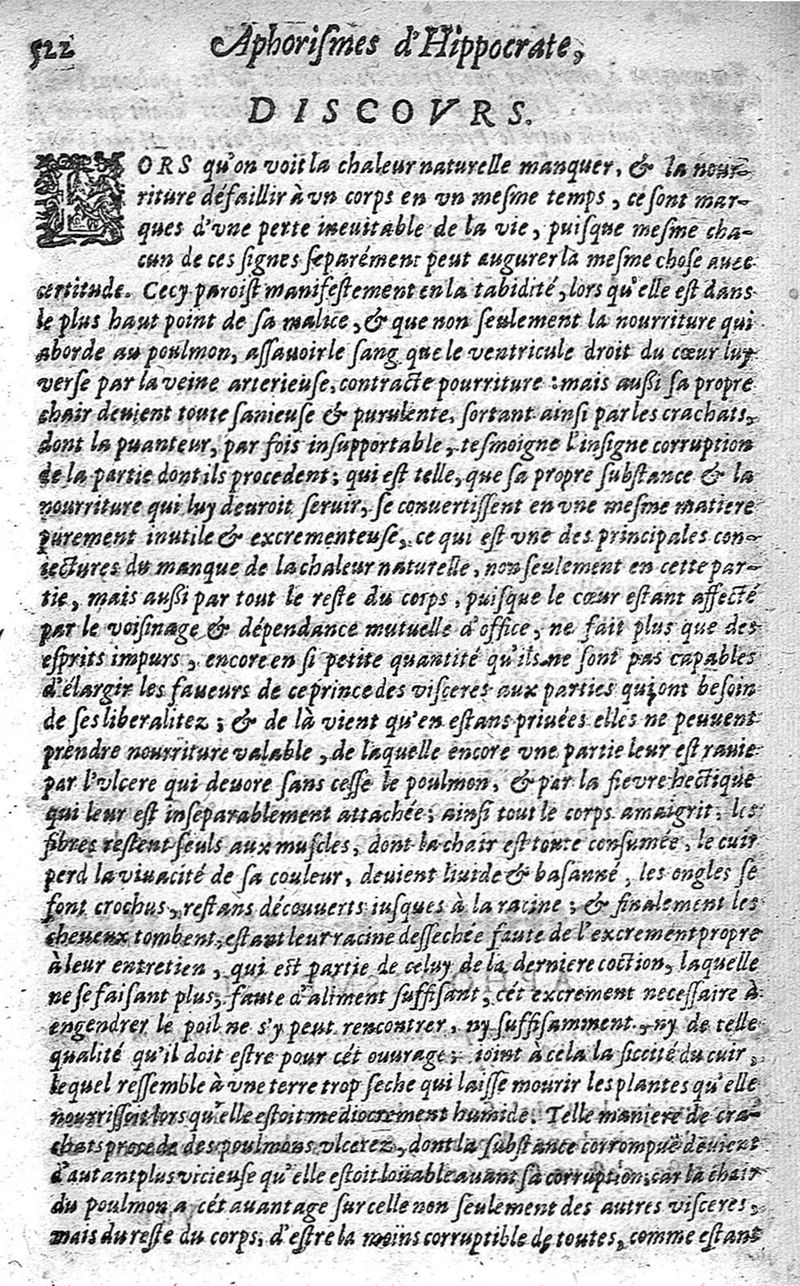 522
Aphorismes d'Hippocrate,
DISCOVRS.
LORS qu'on voit la chaleur naturelle manquer, & la nour-
riture défaillir à vn corps en vn mesme temps, ce sont mar-
ques d'vne perte ineuitable de la vie, puisque mesme cha-
cun de ces signes separément peut augurer la mesme chose auec
certitude. Cecy paroist manifestement en la tabidité, lors qu'elle est dans
le plus haut point de sa malice, & que non seulement la nourriture qui
aborde au poulmon, assauoir le sang que le ventricule droit du cœur luy
verse par la veine arterieuse, contracte pourriture : mais aussi sa propre
chair deuient toute sanieuse & purulente, sortant ainsi par les crachats,
dont la puanteur, par fois insupportable, tesmoigne l'insigne corruption
de la partie dont ils procedent ; qui est telle, que sa propre substance & la
nourriture qui luy deuroit seruir, se conuertissent en vne mesme matiere
purement inutile & excrementeuse, ce qui est vne des principales con-
iectures du manque de la chaleur naturelle, non seulement en cette par-
tie, mais aussi par tout le reste du corps, puisque le cœur estant affecté
par le voisinage & dépendance mutuelle d'office, ne fait plus que des
esprits impurs, encore en si petite quantité qu'ils ne sont pas capables
d'élargir les faueurs de ce prince des visceres aux parties qui ont besoin
de ses liberalitez ; & de là vient qu'en estans priuées elles ne peuuent
prendre nourriture valable, de laquelle encore vne partie leur est rauie
par l'vlcere qui deuore sans cesse le poulmon, & par la fievre hectique
qui leur est inseparablement attachée ; ainsi tout le corps amaigrit, les
fibres restent seuls aux muscles, dont la chair est toute consumée, le cuir
perd la viuacité de sa couleur, deuient liuide & basanné, les ongles se
font crochus, restans découverts iusques à la racine ; & finalement les
cheueux tombent, estant leur racine dessechée faute de l'excrement propre
à leur entretien, qui est partie de celuy de la derniere coction, laquelle
ne se faisant plus, faute d'aliment suffisant, cét excrement necessaire à
engendrer le poil ne s'y peut rencontrer, ny suffisamment, ny de telle
qualité qu'il doit estre pour cét ouvrage ; ioint à cela la siccité du cuir,
lequel ressemble à vne terre trop seche qui laisse mourir les plantes qu'elle
nourrissoit lors qu'elle estoit mediocrement humide. Telle maniere de cra-
chats procede des poulmons vlcerez, dont la substance corrompuë deuient
d'autant plus vicieuse qu'elle estoit loüable auant sa corruption, car la chair
du poulmon a cét auantage sur celle non seulement des autres visceres,
mais du reste du corps, d'estre la moins corruptible de toutes, comme estant